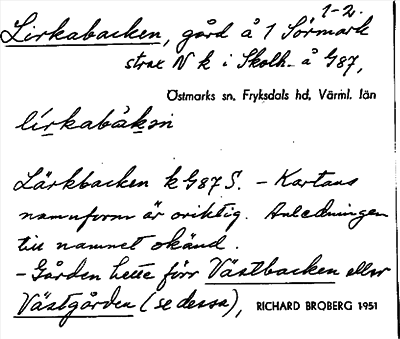 1-2.
Lirkabacken, gård å 1 Sörmark
strax N k i Skolh. å G87,
Östmarks sn, Fryksdals hd, Värml. län
lírkabàkɘn
Lärkbacken k G87 S. – Kartans
namnform är oriktig. Anledningen
till namnet okänd.
– Gården hette förr Västbacken eller
Västgården (se dessa), RICHARD BROBERG 1951